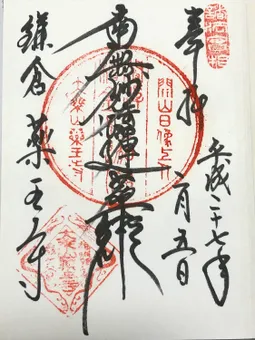 奉拝
平成二十七年
二月五日
南無妙法蓮華経
開山日像上人
大乗山薬王寺
鎌倉 薬王寺